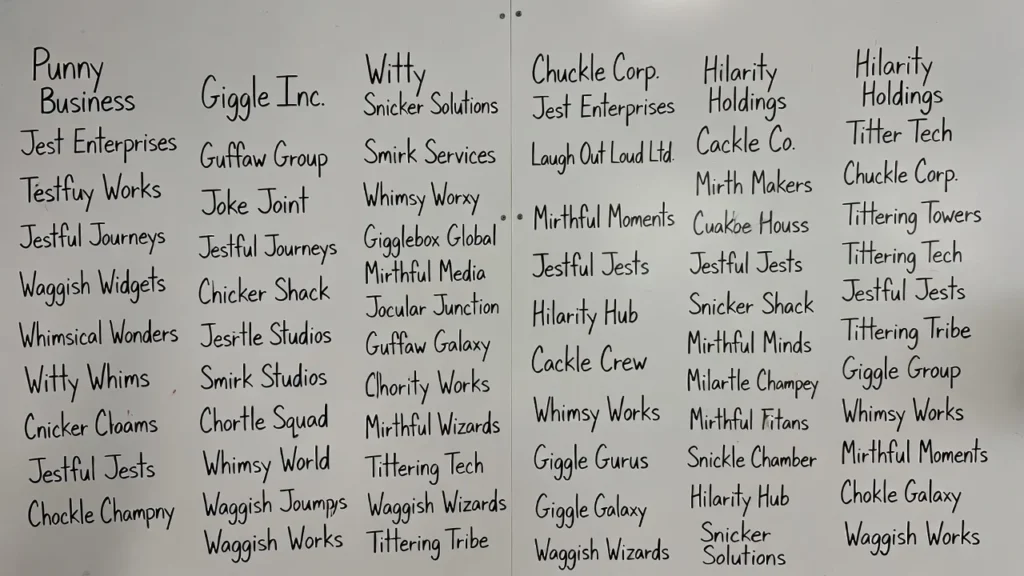 Punny
Business
Jest Enterprises
Testfuy Works
Jestful Journeys
Waggish Widgets
Whimsical Wonders
Witty Whims
Cnicker Cloams
Jestful Jests
Chockle Champny
Giggle Inc.
Guffaw Group
Joke Joint
Jestful Journeys
Chicker Shack
Jesrtle Studios
Smirk Studios
Chortle Squad
Whimsy World
Waggish Joumpys
Waggish Works
Witty
Snicker Solutions
Smirk Services
Whimsy Worxy
Gigglebox Global
Mirthful Media
Jocular Junction
Guffaw Galaxy
Chority Works
Mirthful Wizards
Tittering Tech
Waggish Wizards
Tittering Tribe
Chuckle Corp.
Jest Enterprises
Laugh Out Loud Ltd.
Mirthful Moments
Jestful Jests
Hilarity Hub
Cackle Crew
Whimsy Works
Giggle Gurus
Giggle Galaxy
Waggish Wizards
Hilarity
Holdings
Cackle Co.
Mirth Makers
Cuakoe Houss
Jestful Jests
Snicker Shack
Mirthful Minds
Milartle Champey
Mirthful Fitans
Snickle Chamber
Hilarity Hub
Snicker
Solutions
Hilarity
Holdings
Titter Tech
Chuckle Corp.
Tittering Towers
Tittering Tech
Jestful Jests
Tittering Tribe
Giggle Group
Whimsy Works
Mirthful Moments
Chokle Galaxy
Waggish Works